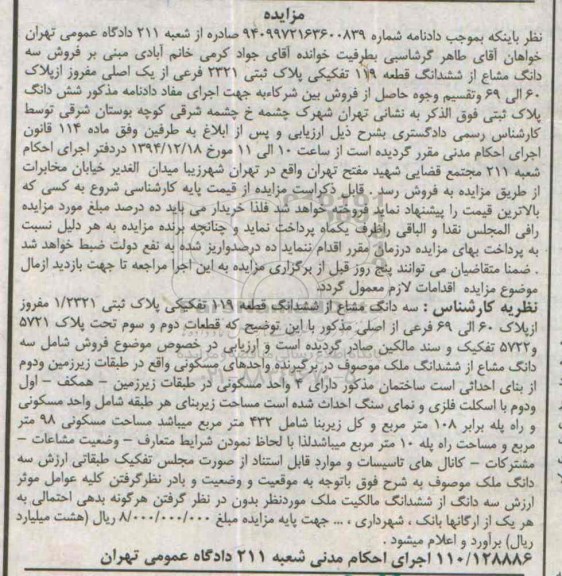 مزایده
نظر باینکه بموجب دادنامه شماره ۹۴۰۹۹۷۲۱۶۳۶۰۰۸۳۹ صادره از شعبه ۲۱۱ دادگاه عمومی تهران
خواهان آقای طاهر گرشاسبی بطرفیت خوانده آقای جواد کرمی خانم آبادی مبنی بر فروش سه
دانگ مشاع از ششدانگ قطعه ۱۱۹ تفکیکی پلاک ثبتی ۲۳۲۱ فرعی از یک اصلی مفروز ازپلاک
۶۰ الی ۶۹ وتقسیم وجوه حاصل از فروش بین شرکاءبه جهت اجرای مفاد دادنامه مذکور شش دانگ
پلاک ثبتی فوق الذکر به نشانی تهران شهرک چشمه خ چشمه شرقی کوچه بوستان شرقی توسط
کارشناس رسمی دادگستری بشرح ذیل ارزیابی و پس از ابلاغ به طرفین وفق ماده ۱۱۴ قانون
اجرای احکام مدنی مقرر گردیده است از ساعت ۱۰ الی ۱۱ مورخ ۱۳۹۴/۱۲/۱۸ دردفتر اجرای احکام
شعبه ۲۱۱ مجتمع قضایی شهید مفتح تهران واقع در تهران شهرزیبا میدان الغدیر خیابان مخابرات
از طریق مزایده به فروش رسد . قابل ذکراست مزایده از قیمت پایه کارشناسی شروع به کسی که
بالاترین قیمت را پیشنهاد نماید فروخته خواهد شد فلذا خریدار می باید ده درصد مبلغ مورد مزایده
رافی المجلس نقدا و الباقی راظرف یکماه پرداخت نماید و چنانچه برنده مزایده به هر دلیل نسبت
به پرداخت بهای مزایده درزمان مقرر اقدام ننماید ده درصدواریز شده به نفع دولت ضبط خواهد شد
. ضمنا متقاضیان می توانند پنج روز قبل از برگزاری مزایده به این اجرا مراجعه تا جهت بازدید ازمال
موضوع مزایده اقدامات لازم معمول گردد.
نظریه کارشناس : سه دانگ مشاع از ششدانگ قطعه ۱۱۹ تفکیکی پلاک ثبتی ۱/۲۳۲۱ مفروز
ازپلاک ۶۰ الی ۶۹ فرعی از اصلی مذکور با این توضیح که قطعات دوم و سوم تحت پلاک ۵۷۲۱
و۵۷۲۲ تفکیک و سند مالکین صادر گردیده است و ارزیابی در خصوص موضوع فروش شامل سه
دانگ مشاع از ششدانگ ملک موصوف در برگیرنده واحدهای مسکونی واقع در طبقات زیرزمین ودوم
از بنای احداثی است ساختمان مذکور دارای ۴ واحد مسکونی در طبقات زیرزمین – همکف – اول
ودوم با اسکلت فلزی و نمای سنگ احداث شده است مساحت زیربنای هر طبقه شامل واحد مسکونی
و راه پله برابر ۱۰۸ متر مربع و کل زیربنا شامل ۴۳۲ متر مربع میباشد مساحت مسکونی ۹۸ متر
مربع و مساحت راه پله ۱۰ متر مربع میباشدلذا با لحاظ نمودن شرایط متعارف – وضعیت مشاعات –
مشترکات – کانال های تاسیسات و موارد قابل استناد از صورت مجلس تفکیک طبقاتی ارزش سه
دانگ ملک موصوف به شرح فوق باتوجه به موقعیت و وضعیت و بادر نظرگرفتن کلیه عوامل موثر
ارزش سه دانگ از ششدانگ مالکیت ملک موردنظر بدون در نظر گرفتن هرگونه بدهی احتمالی به
هر یک از ارگانها بانک ، شهرداری ، ... جهت پایه مزایده مبلغ ۸/۰۰۰/۰۰۰/۰۰۰ ریال (هشت میلیارد
ریال) برآورد و اعلام میشود .
۱۱۰/۱۲۸۸۸۶ اجرای احکام مدنی شعبه ۲۱۱ دادگاه عمومی تهران